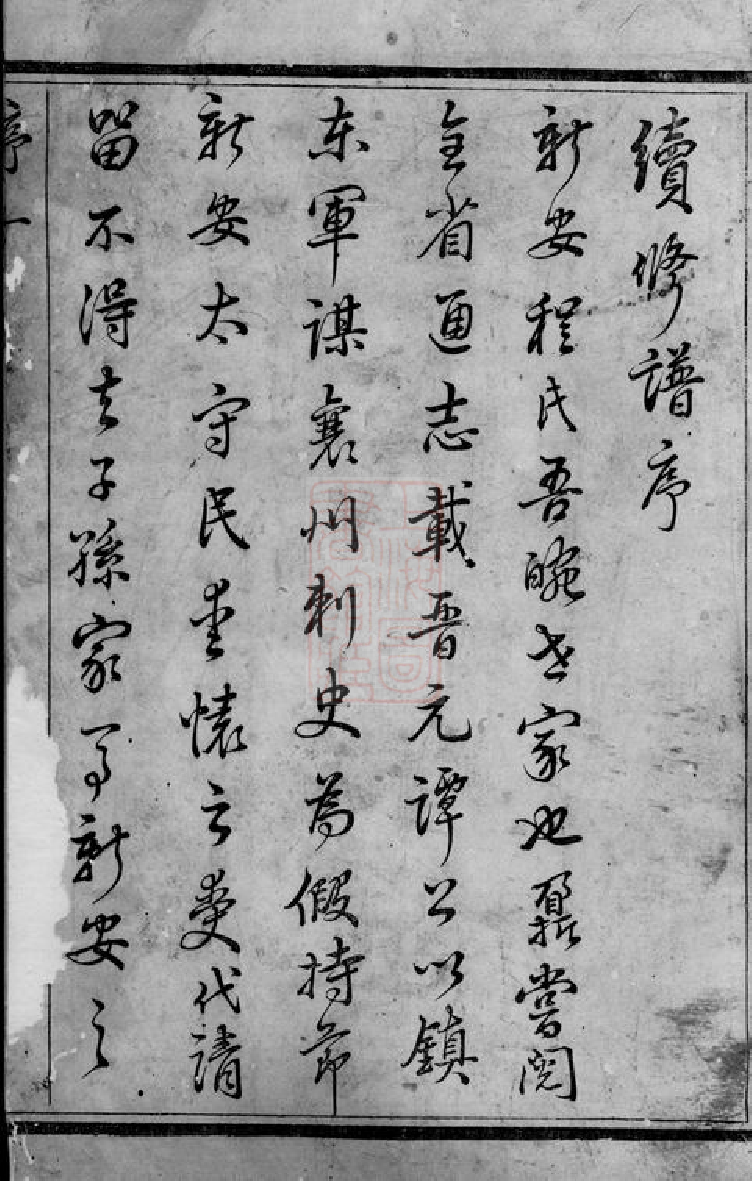 續修譜序
新安程氏吾皖世家也鼐嘗閱
全省通志載晉元譚公以鎮
东軍謀襄州刺史為假持節
新安太守民愛懷之受代請
留不得去子孫家焉新安之
序一